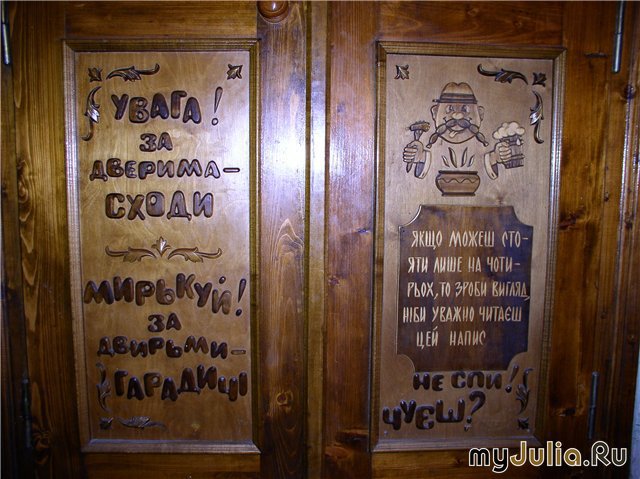 УВАГА!
ЗА
ДВЕРИМА-
СХОДИ
МИРЬКУЙ!
ЗА
ДВИРЬМИ-
ГАРАДИЧІ
ЯКЩО МОЖЕШ СТО-
ЯТИ ЛИШЕ НА ЧОТИ-
РЬОХ, ТО ЗРОБИ ВИГЛЯД,
НІБИ УВАЖНО ЧИТАЄШ
ЦЕЙ НАПИС
НЕ СПИ!
ЧУЄШ?
myJulia.Ru